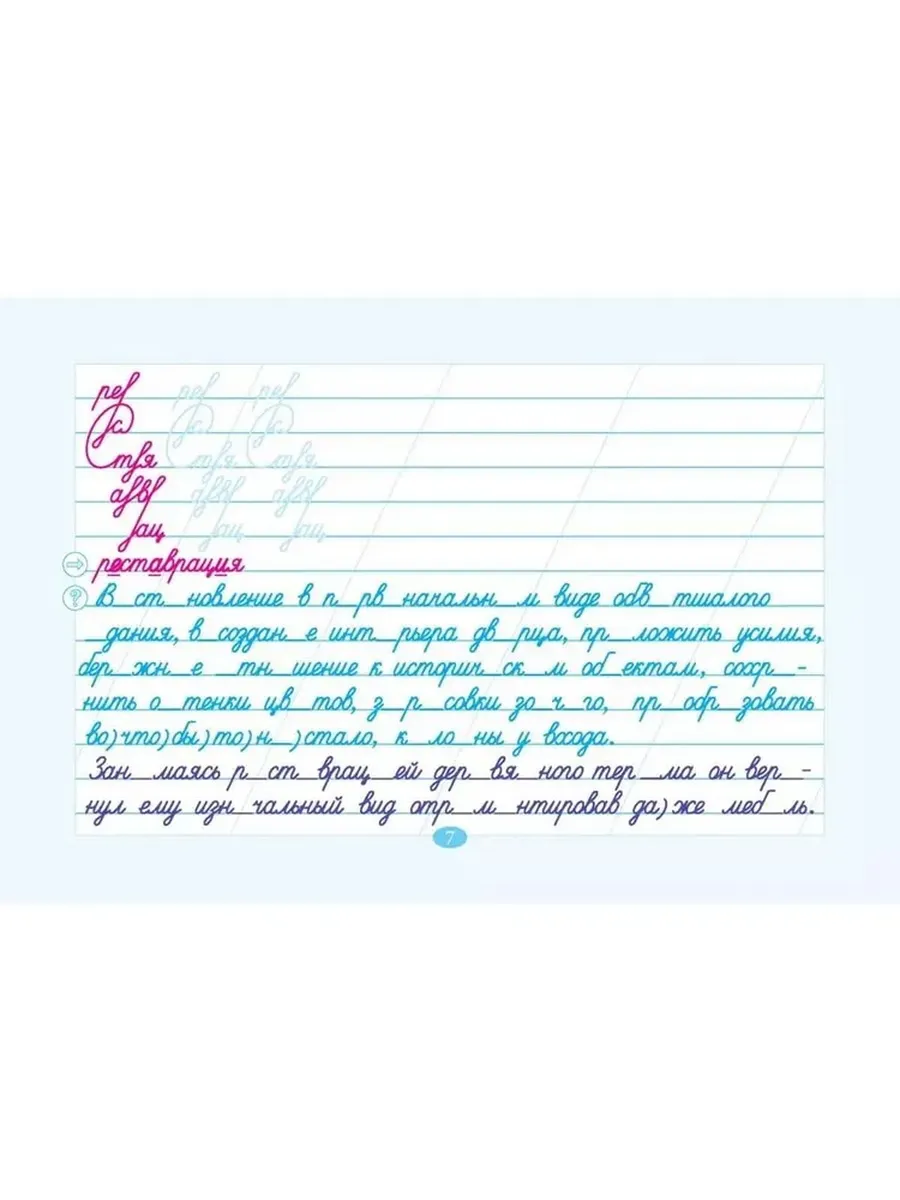 ре
с
тя
ав
ац
реставрация
В_ст_новление в п_рв_начальн_м виде обв_тшалого
_дания, в создан_е инт_рьера дв_рца, пр_ложить усилия,
бер_жн_е _тн_шение к историч_ск_м об_ектам, сохр_-
нить о_тенки цв_тов, з_р_совки зо_ч_го, пр_обр_зовать
во)что)бы)то)н_)стало, к_ло_ны у входа.
Зан_маясь р_ст_врац_ей дер_вя_ного тер_ма он вер_-
нул ему изн_чальный вид отр_м_нтировав да)же меб_ль.
7